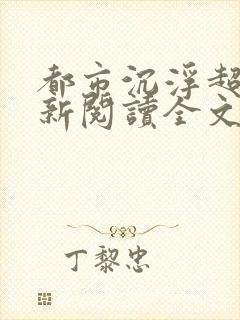 都市沉浮超
新閱讀全文
丁黎忠